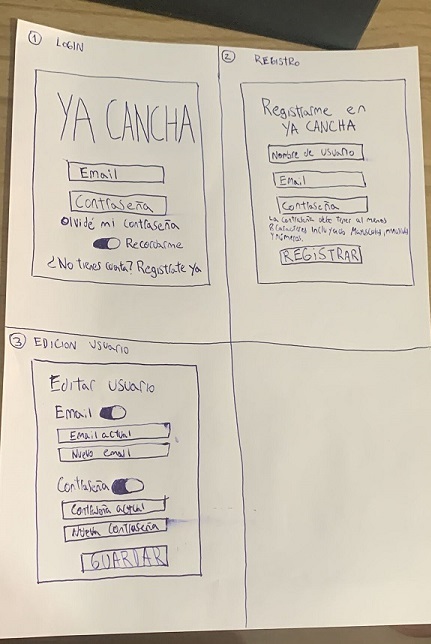 ① LOGIN
YA CANCHA
Email
Contraseña
Olvidé mi contraseña
Recordarme
¿No tienes cuenta? Registrate ya
② REGISTRO
Registrarme en
YA CANCHA
Nombre de usuario
Email
Contraseña
La contraseña debe tener al menos
8 caracteres incluyendo Mayúscula, minúscula
y números.
REGISTRAR
③ EDICION USUARIO
Editar usuario
Email
Email actual
Nuevo email
Contraseña
Contraseña actual
Nueva contraseña
GUARDAR